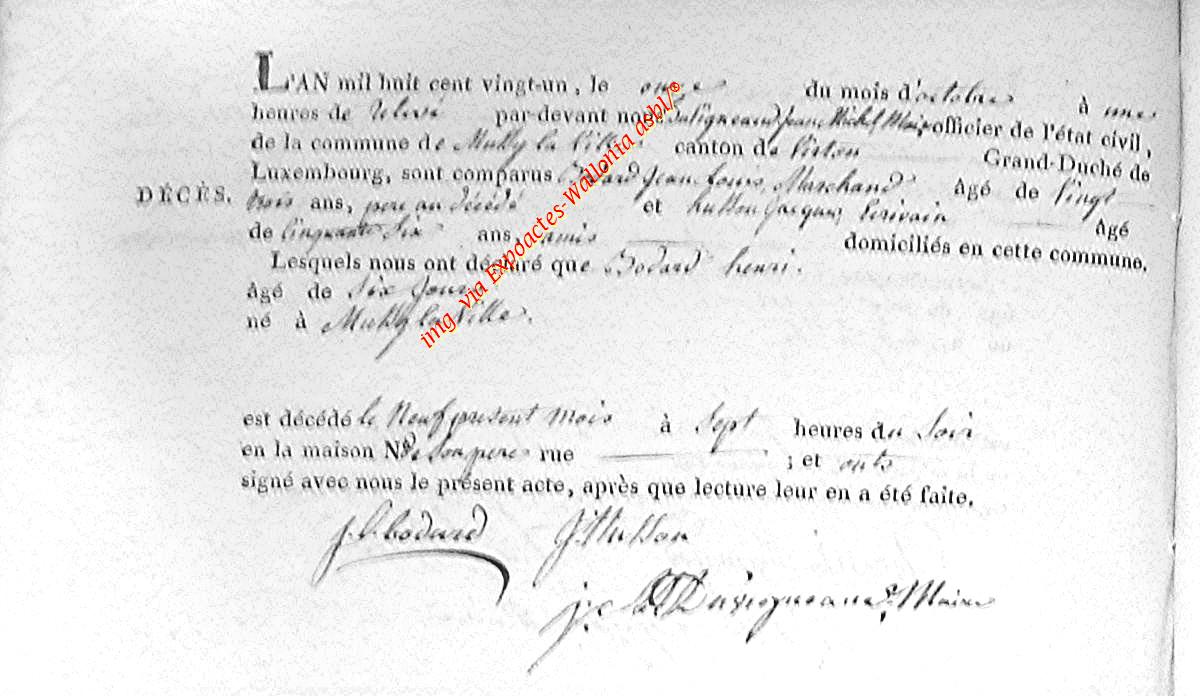 L'AN mil huit cent vingt-un, le onze du mois d'octobre à une
heures de relevé par-devant nous Duvigneaud Jean Michel Maire officier de l'état civil,
de la commune de Mussy la Ville canton de Virton Grand-Duché de
Luxembourg, sont comparus Bodard Jean Louis Marchand âgé de vingt
DÉCÈS. trois ans, pere au décédé et husson Jacques Ecrivain âgé
de Cinquante Six ans, amis domiciliés en cette commune.
Lesquels nous ont déclaré que Bodard henri.
âgé de Six jours
né à Mussy la Ville.
est décédé le Neuf present mois à Sept heures du Soir
en la maison Nº de Son pere rue ; et onts
signé avec nous le présent acte, après que lecture leur en a été faite.
j. l. bodard J. Husson
Maire
img via Expoactes-Wallonia asbl/®